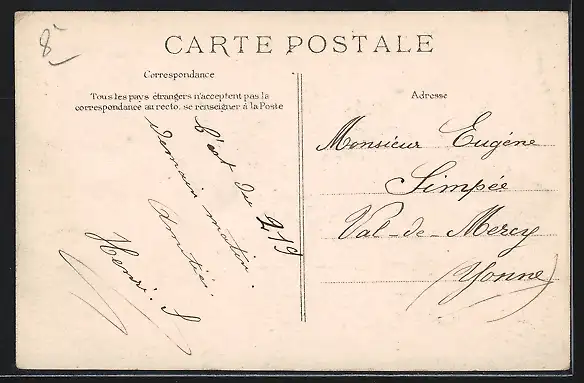 8
CARTE POSTALE
Correspondance
Tous les pays étrangers n'acceptent pas la
correspondance au recto, se renseigner à la Poste
C'est du 219
Demain matin.
Amitié.
Henri. S
Adresse
Monsieur Eugéne
Simpée
Val-de-Mercy
(Yonne)